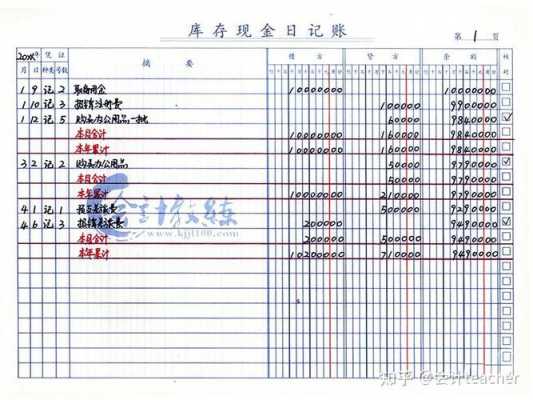 库存现金日记账
第 1 页
20XX年 凭证 摘要 借方 贷方 余额 核对
月 日 种类 号数
1 9 记 2 取备用金 10000000 10000000
1 10 记 3 报销注册费 100000 9900000
1 12 记 5 购买办公用品一批 60000 9840000 √
本月合计 10000000 160000 9840000
本年累计 10000000 160000 9840000
3 2 记 2 购买办公用品 50000 9790000 √
本月合计 50000 9790000
本年累计 10000000 210000 9790000
4 1 记 1 差旅费 500000 9290000
4 6 记 3 报销差旅费 200000 9490000 √
本月合计 200000 500000 9490000
本年累计 10200000 710000 9490000
会计教练
www.kjjl100.com
知乎 @会计teacher